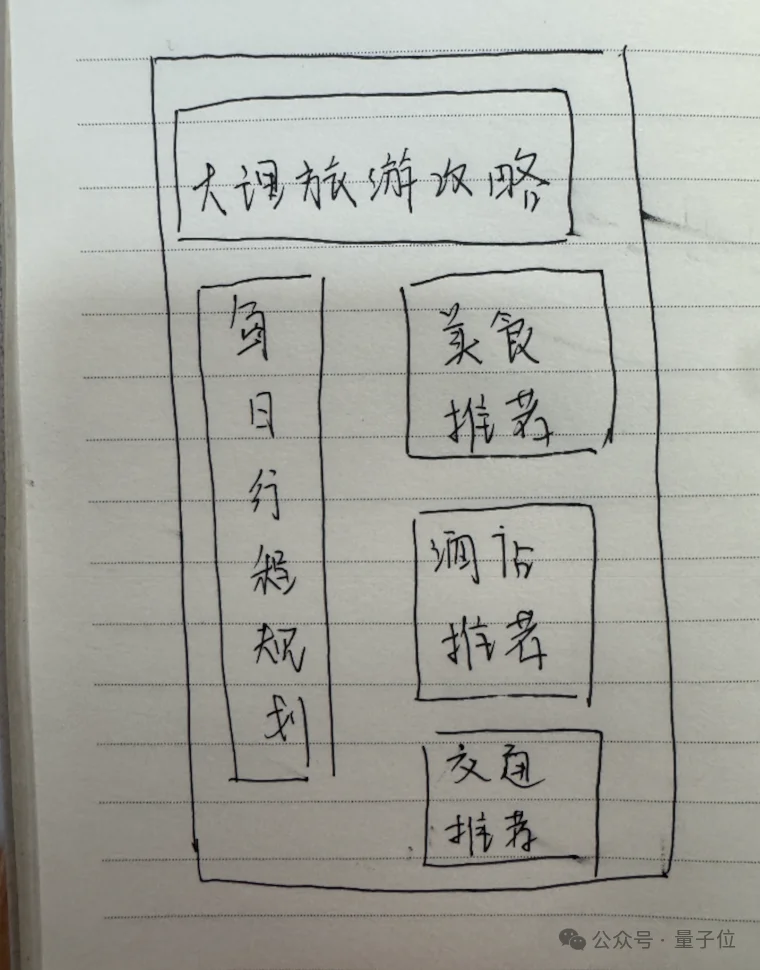 大理旅游攻略
每
日
行
程
规
划
美食
推荐
酒店
推荐
交通
推荐
公众号·量子位